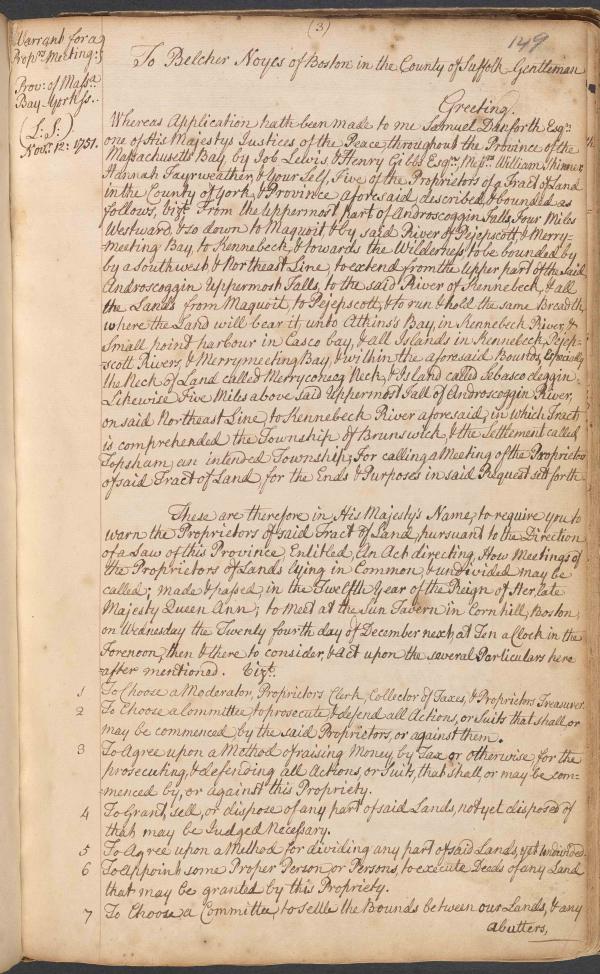 (3)
149
Warrant for a
Prop.rs Meeting:
Prov: of Massa
Bay York ss..
(L:S:)
Nov.r 12: 1751.
To Belcher Noyes of Boston in the County of Suffolk Gentleman
Greeting.
Whereas Application hath been made to me Samuel Danforth Esq.r
one of His Majestys Justices of the Peace throughout the Province of the
Massachusetts Bay, by Job Lewis & Henry Gibbs Esq.rs, Mess.rs William Skinner
Hannah Fayrweather, & your Self, Five of the Proprietors of a Tract of Land
in the County of York, & Province aforesaid, described, & bounded as
follows, viz.t From the Uppermost part of Androscoggin Falls, Four Miles
Westward, & so down to Maquoit & by said River of Pejepscott & Merry-
-meeting Bay, to Kennebeck, & towards the Wilderness to be bounded by
by a Southwest & Northeast Line, to extend from the Upper part of the said
Androscoggin Uppermost Falls, to the said River of Kennebeck, & all
the Lands from Maquoit, to Pejepscott, & to run & hold the same Breadth,
where the Land will bear it, unto Atkins's Bay, in Kennebeck River, &
Small point harbour in Casco bay, & all Islands in Kennebeck, Pejep-
scott Rivers, & Merrymeeting Bay, & within the aforesaid Bounds, Especially
the Neck of Land called Merryconecg Neck, & Island called Sebasco deggin:
Likewise Five Miles above said Uppermost Fall of Androscoggin River,
on said Northeast Line, to Kennebeck River aforesaid, in which Tract
is comprehended the Township of Brunswick, & the Settlement called
Topsham, an intended Township; For calling a Meeting of the Proprietors
of said Tract of Land, for the Ends & Purposes in said Request sett forth.
These are therefore in His Majesty's Name, to require you to
warn the Proprietors of said Tract of Land, pursuant to the Direction
of a Law of this Province, Entitled, An Act directing, How Meetings of
the Proprietors of Lands lying in Common, & undivided may be
called; made & passed, in the Twelfth Year of the Reign of Her late
Majesty Queen Ann; to meet at the Sun Tavern in Cornhill, Boston,
on Wednesday the Twenty fourth day of December next, at Ten a Clock in the
Forenoon, then & there to consider, & act upon the several Particulars here
after mentioned. Viz.t
1 To Choose a Moderator, Proprietors Clerk, Collector of Taxes, & Proprietors Treasurer.
2 To Choose a Committee, to prosecute, & defend all Actions, or Suits that shall, or
may be commenced by the said Proprietors, or against them.
3 To Agree upon a Method of raising Money, by Tax or otherwise, for the
prosecuting, & defending all Actions, or Suits, that shall, or may be com-
-menced by, or against this Propriety.
4 To Grant, sell, or dispose of any part of said Lands, not yet disposed of
that may be Judged Necessary.
5 To Agree upon a Method for dividing any part of said Lands, yet Undivided.
6 To Appoint some Proper Person, or Persons, to execute Deeds of any Land
that may be granted by this Propriety.
7 To Choose a Committee, to settle the Bounds between our Lands, & any
abutters,